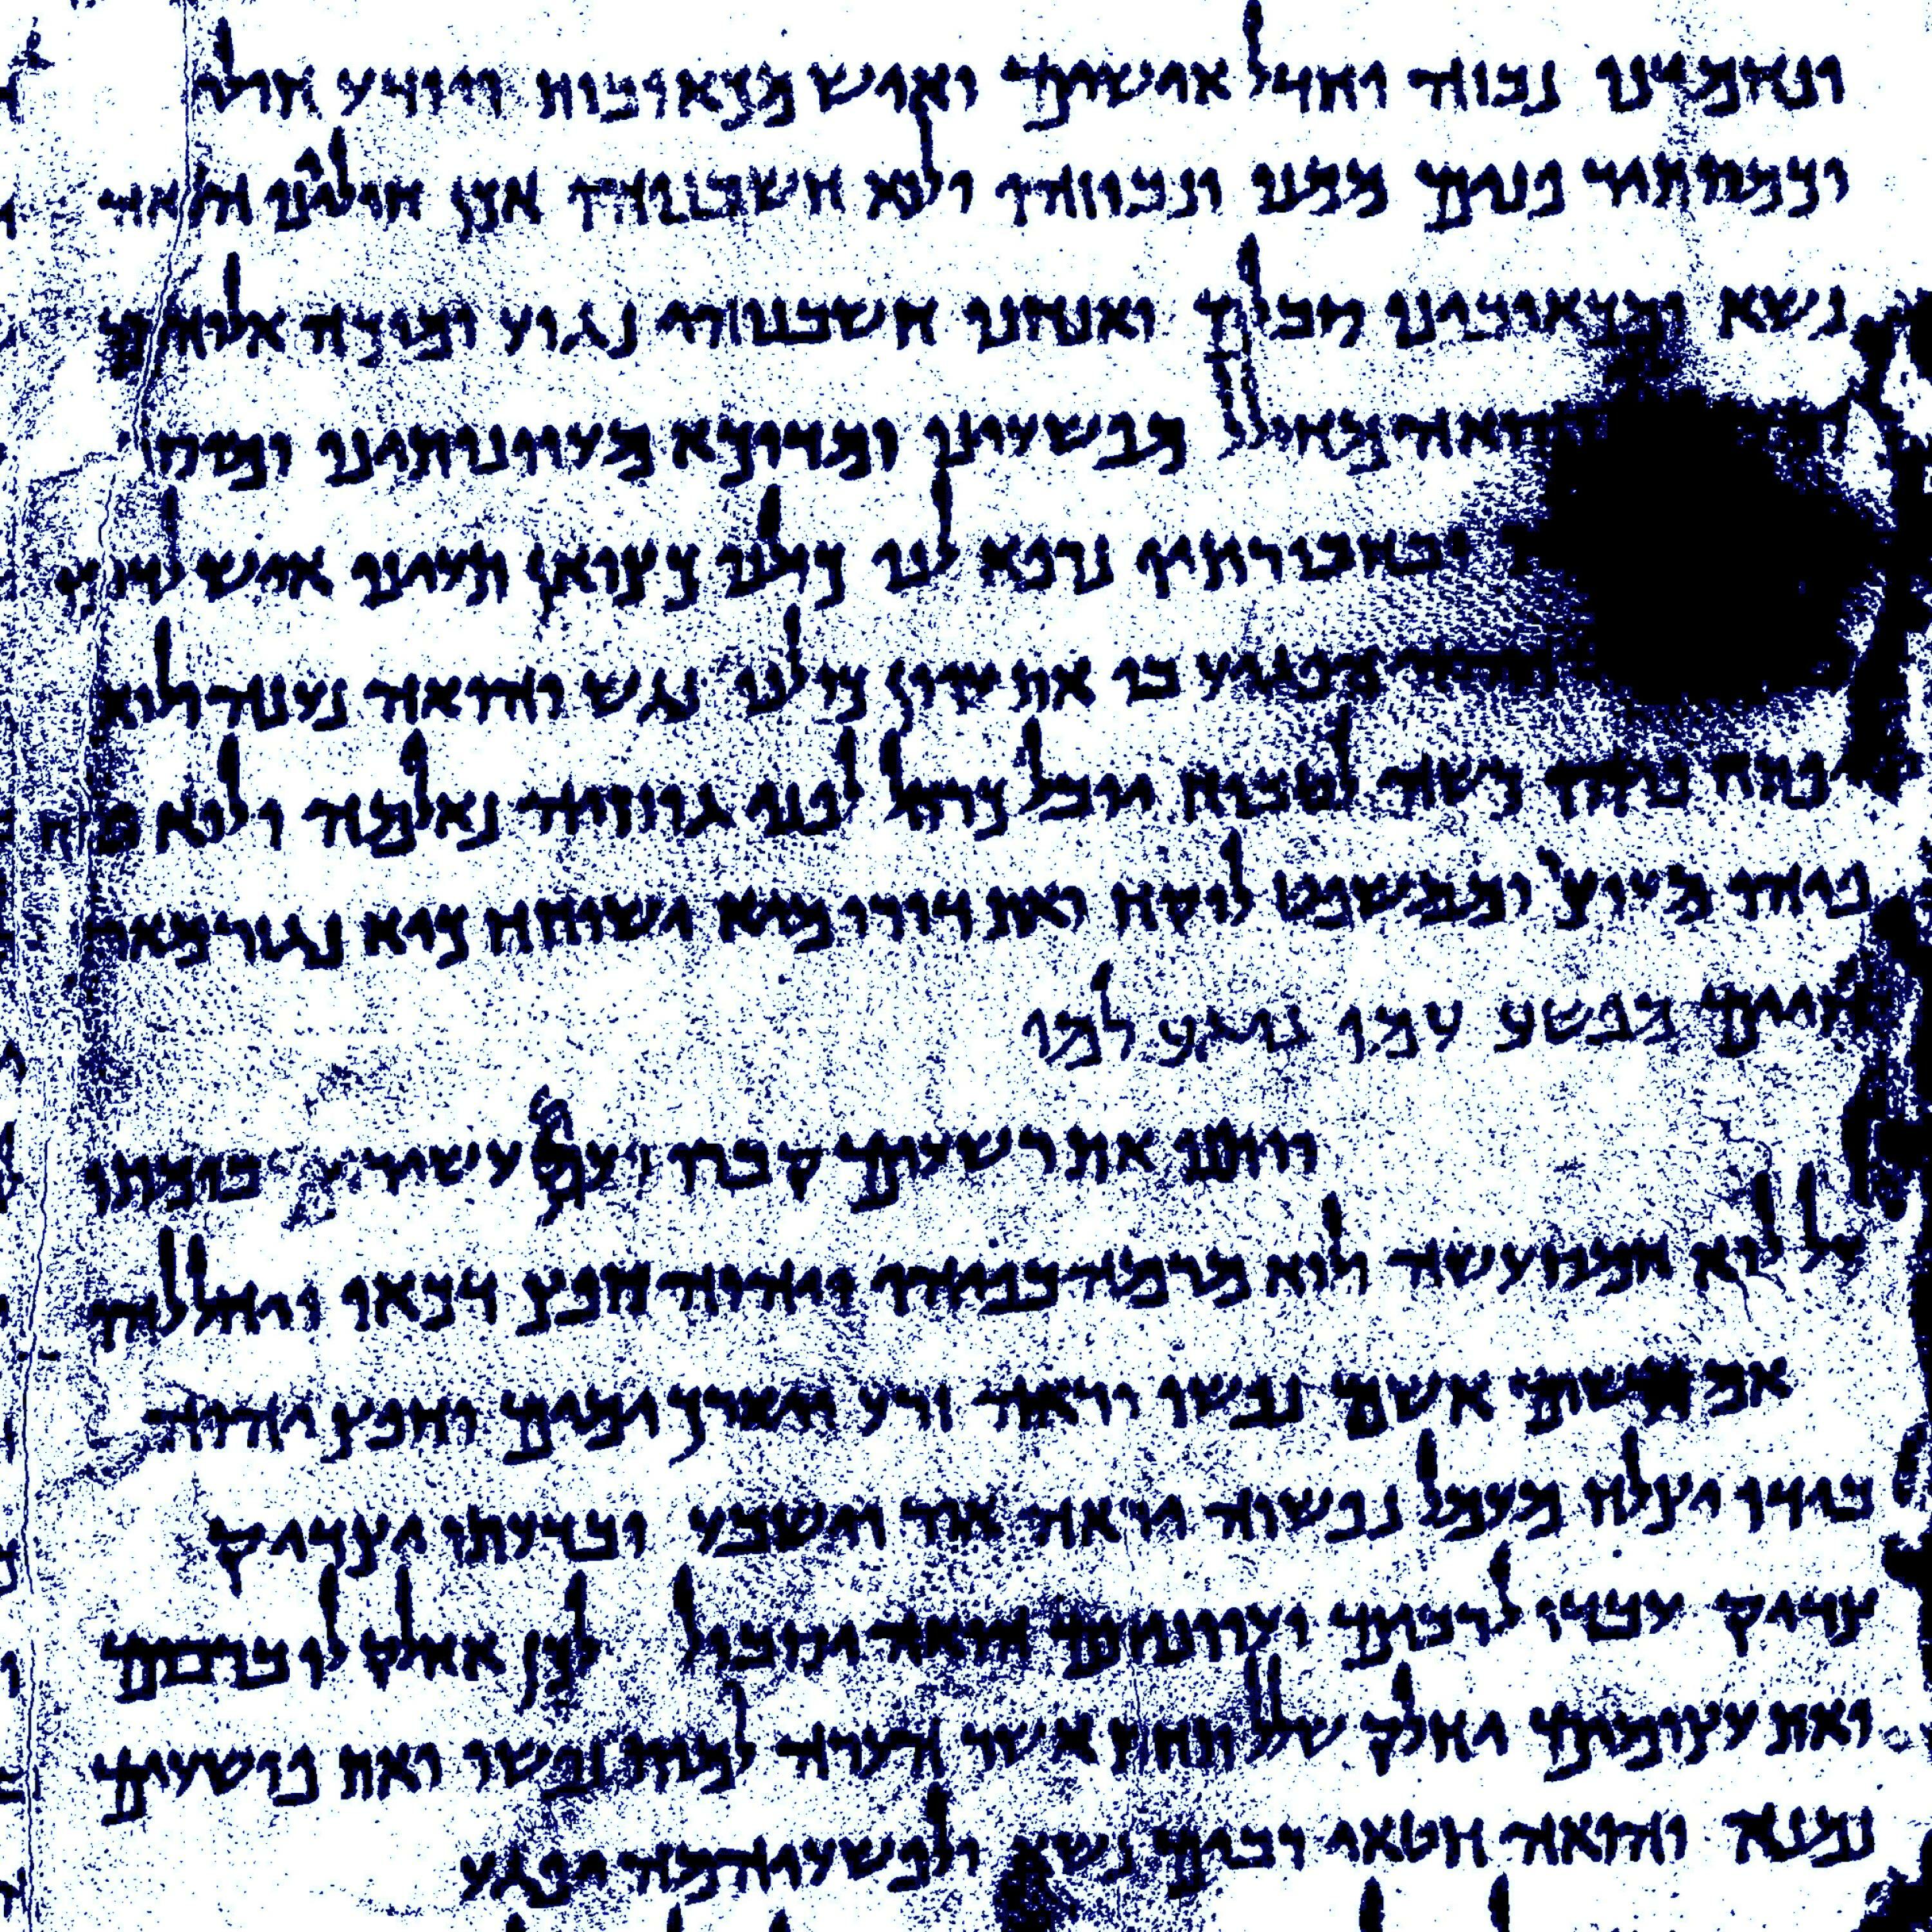 ונחמדנו נבזה וחדל אישים ואיש מכאובות ויודע חולי
וכמסתיר פנים ממנו ונבוזהו ולוא חשבנוהו אכן חוליינו הואה
נשא ומכאובינו סבלם ואנחנו חשבנוהו נגוע ומוכה אלוהים
והואה מחולל מפשעינו ומדוכא מעוונותינו ומוסר
ובחבורתיו נרפא לנו כולנו כצואן תעינו איש לדרכו
הפגיע בו את עוון כולנו נגש והואה נענה ולוא
פתח פיהו כשה לטבוח יובל כרחל לפני גוזזיה נאלמה ולוא פתח
פיהו מעוצר וממשפט לוקח ואת דורו מיא ישוחח כיא נגזר מארץ
חיים מפשע עמו נוגע למו
ויתנו את רשעים קברו ועם עשיר בומתו
על לוא חמס עשה ולוא מרמה בפיהו ויהוה חפץ דכאו ויחללהו
אם תשים אשם נפשו יראה זרע ויארך ימים וחפץ יהוה
בידו יצלח מעמל נפשוה יראה אור וישבע ובדעתו יצדיק
צדיק עבדו לרבים ועוונותם הואה יסבול לכן אחלק לו ברבים
ואת עצומים יחלק שלל תחת אשר הערה למות נפשו ואת פושעים
נמנה והואה חטאי רבים נשא ולפשעיהמה יפגע